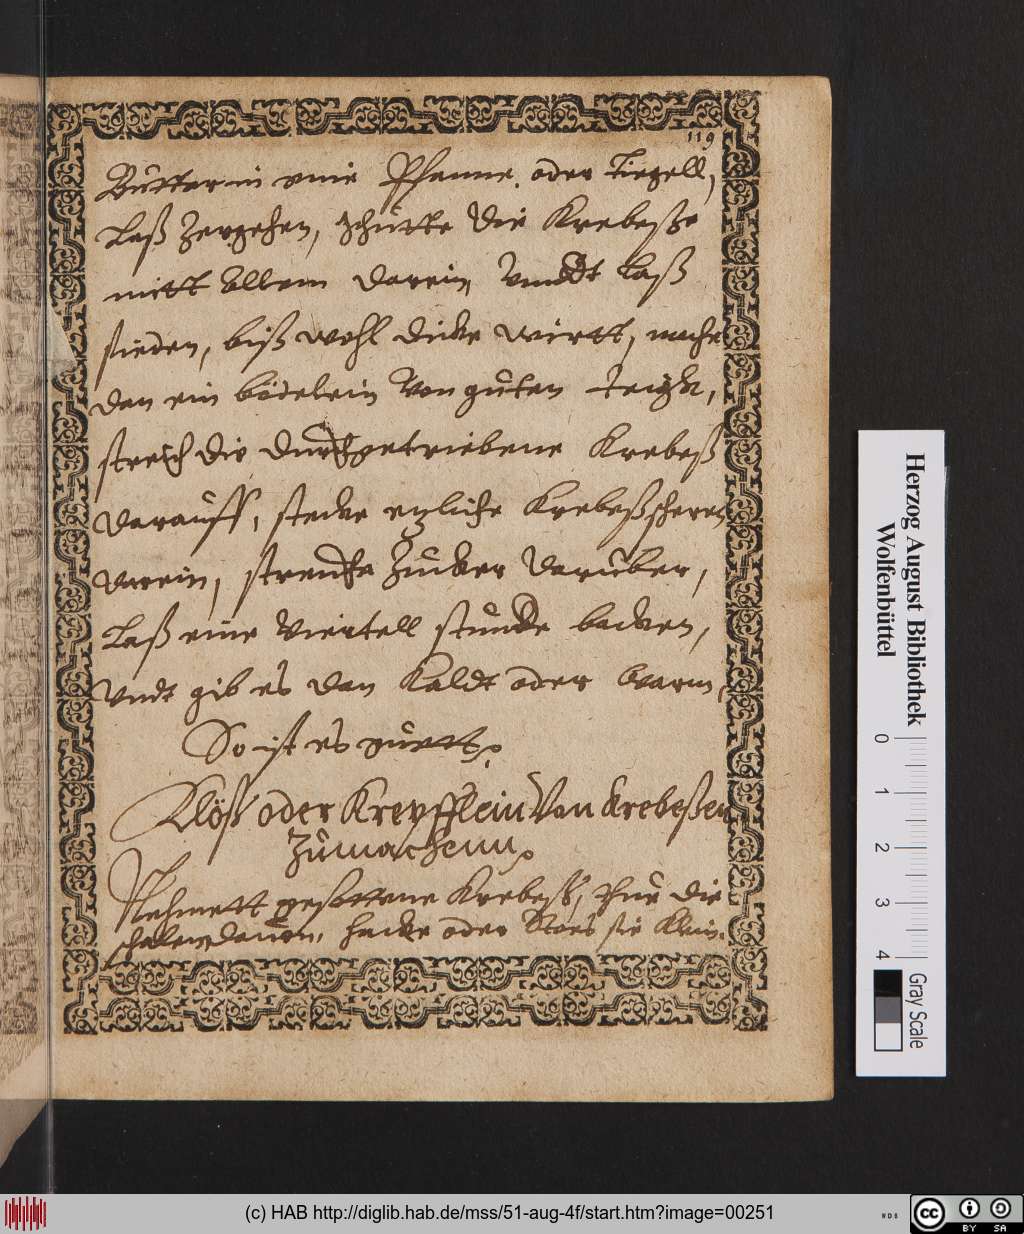 119
Butter in eine Pfanne oder Tiegell,
Laß Zergehen, schütte die Krebeße
mitt allem darein, Vnndt Laß
sieden, biß wohl dicke wirtt, mache
dan ein bödelein Von guten teigk,
streich die durchgetriebene Krebeß
darauff, stecke etzliche Krebeßscheren
darein, streuhe Zucker darüber,
Laß eine Viertell stunde backen,
Vndt gib es dan Kaldt oder warm,
So ist es guett.
Klöß oder Krepfflein Von krebeßen
Zumachenn.
Nehmett gesottene Krebeß, thue die
schalen dauon, hacke oder Stoes sie Klein.
Herzog August Bibliothek
Wolfenbüttel
0 1 2 3 4
Gray Scale
(c) HAB http://diglib.hab.de/mss/51-aug-4f/start.htm?image=00251
WDB
cc BY SA